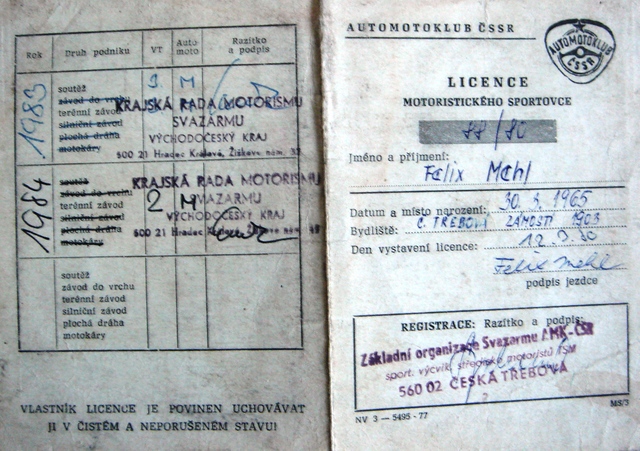 Rok Druh podniku VT Auto moto Razítko a podpis
1983
soutěž
závod do vrchu
terénní závod
silniční závod
plochá dráha
motokáry
3 M
KRAJSKÁ RADA MOTORISMU
SVAZARMU
VÝCHODOČESKÝ KRAJ
500 21 Hradec Králové, Žižkovo nám. 32
1984
soutěž
závod do vrchu
terénní závod
silniční závod
plochá dráha
motokáry
2 M
KRAJSKÁ RADA MOTORISMU
SVAZARMU
VÝCHODOČESKÝ KRAJ
500 21 Hradec Králové, Žižkovo nám.
soutěž
závod do vrchu
terénní závod
silniční závod
plochá dráha
motokáry
VLASTNÍK LICENCE JE POVINEN UCHOVÁVAT
JI V ČISTÉM A NEPORUŠENÉM STAVU!
AUTOMOTOKLUB ČSSR
AUTOMOTOKLUB
ČSSR
LICENCE
MOTORISTICKÉHO SPORTOVCE
88/80
Jméno a příjmení:
Felix Mahl
Datum a místo narození: 30. 3. 1965
Bydliště: Č. TŘEBOVÁ ZÁMOSTÍ 1903
Den vystavení licence: 12. 3. 80
Felix Mahl
podpis jezdce
REGISTRACE: Razítko a podpis:
Základní organizace Svazarmu AMK-ČSR
sport. výcvik. středisko motoristů TSM
560 02 ČESKÁ TŘEBOVÁ
2
NV 3 — 5495 - 77 MS/3